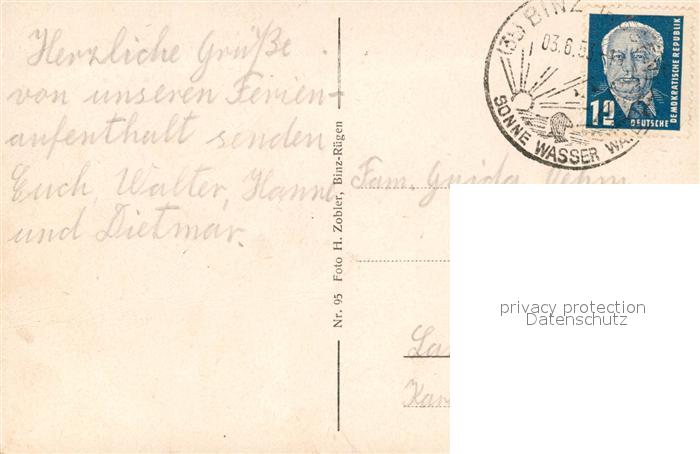 Herzliche Grüße
von unseren Ferien-
aufenthalt senden
Euch, Walter, Hanne
und Dietmar.
Nr. 95 Foto H. Zobler, Binz-Rügen
BINZ
03.6.53
SONNE WASSER
12
DEUTSCHE
DEMOKRATISCHE REPUBLIK
Fam. Guida
privacy protection
Datenschutz